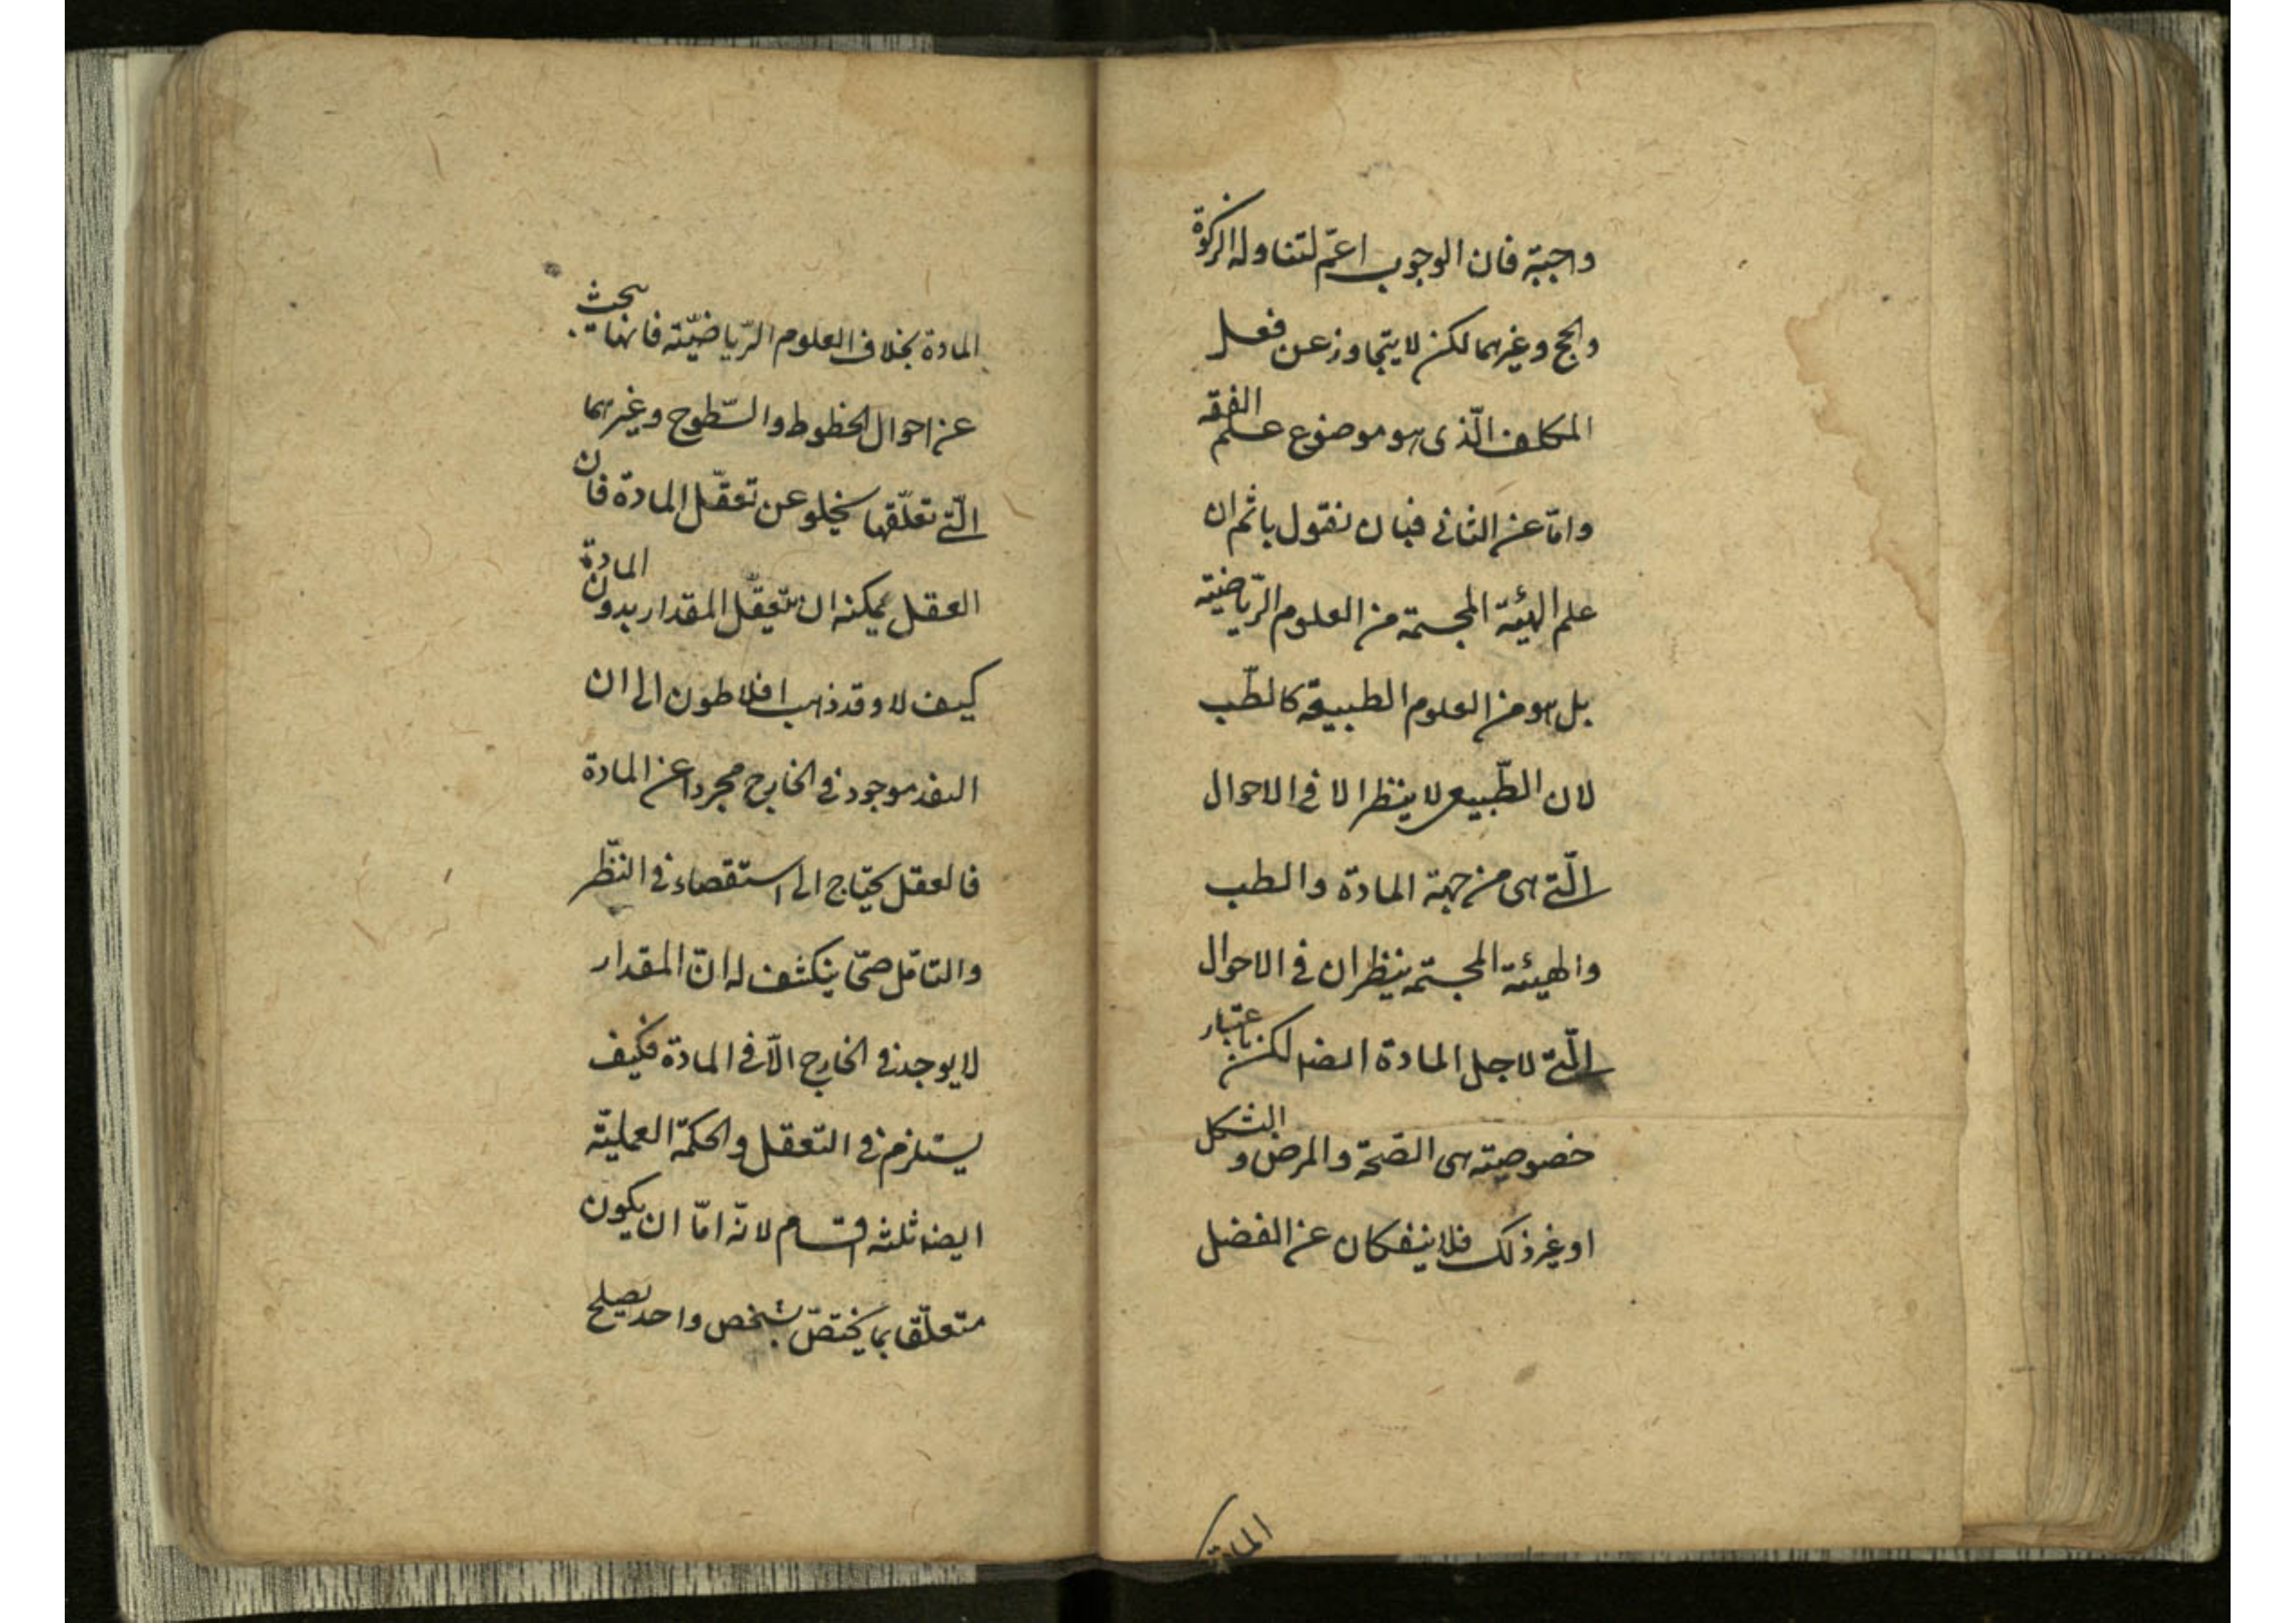 واجبة فان الوجوب اعمّ لتناوله الزكوة
والحج وغيرهما لكن لا يتجاوز عن فعل
المكلف الّذى هو موضوع علم الفقه
وامّا عن الثانى فبان نقول باثم ان
علم الهيئة المجسّمة من العلوم الرّياضيّة
بل هو من العلوم الطبيعية كالطّب
لان الطّبيعى لا ينظر الا فى الاحوال
الّتى هى من جهة المادة والطب
والهيئة المجسّمة ينظران فى الاحوال
الّتى لاجل المادة ايضا لكن باعتبار
خصوصيته هى الصّحة والمرض والشكل
او غير ذلك فلا ينفكان عن
المادة
المادة بخلاف العلوم الرّياضيّة فانها يبحث
عن احوال الخطوط والسّطوح وغيرهما
الّتى تعلّقها يخلو عن تعقّل المادة فان
العقل يمكنه ان يتعقّل المقدار بدون المادة
كيف لا وقد ذهب افلاطون الى ان
البعد موجود فى الخارج مجردا عن المادة
فالعقل يحتاج الى استقصاء فى النظّر
والتامّل حتّى ينكشف له انّ المقدار
لا يوجد فى الخارج الّا فى المادة فكيف
يستلزم فى التعقل والحكمة العمليّة
ايضا ثلثه اقسام لانّه امّا ان يكون
متعلّقا بما يختصّ بشخص واحد يصلح